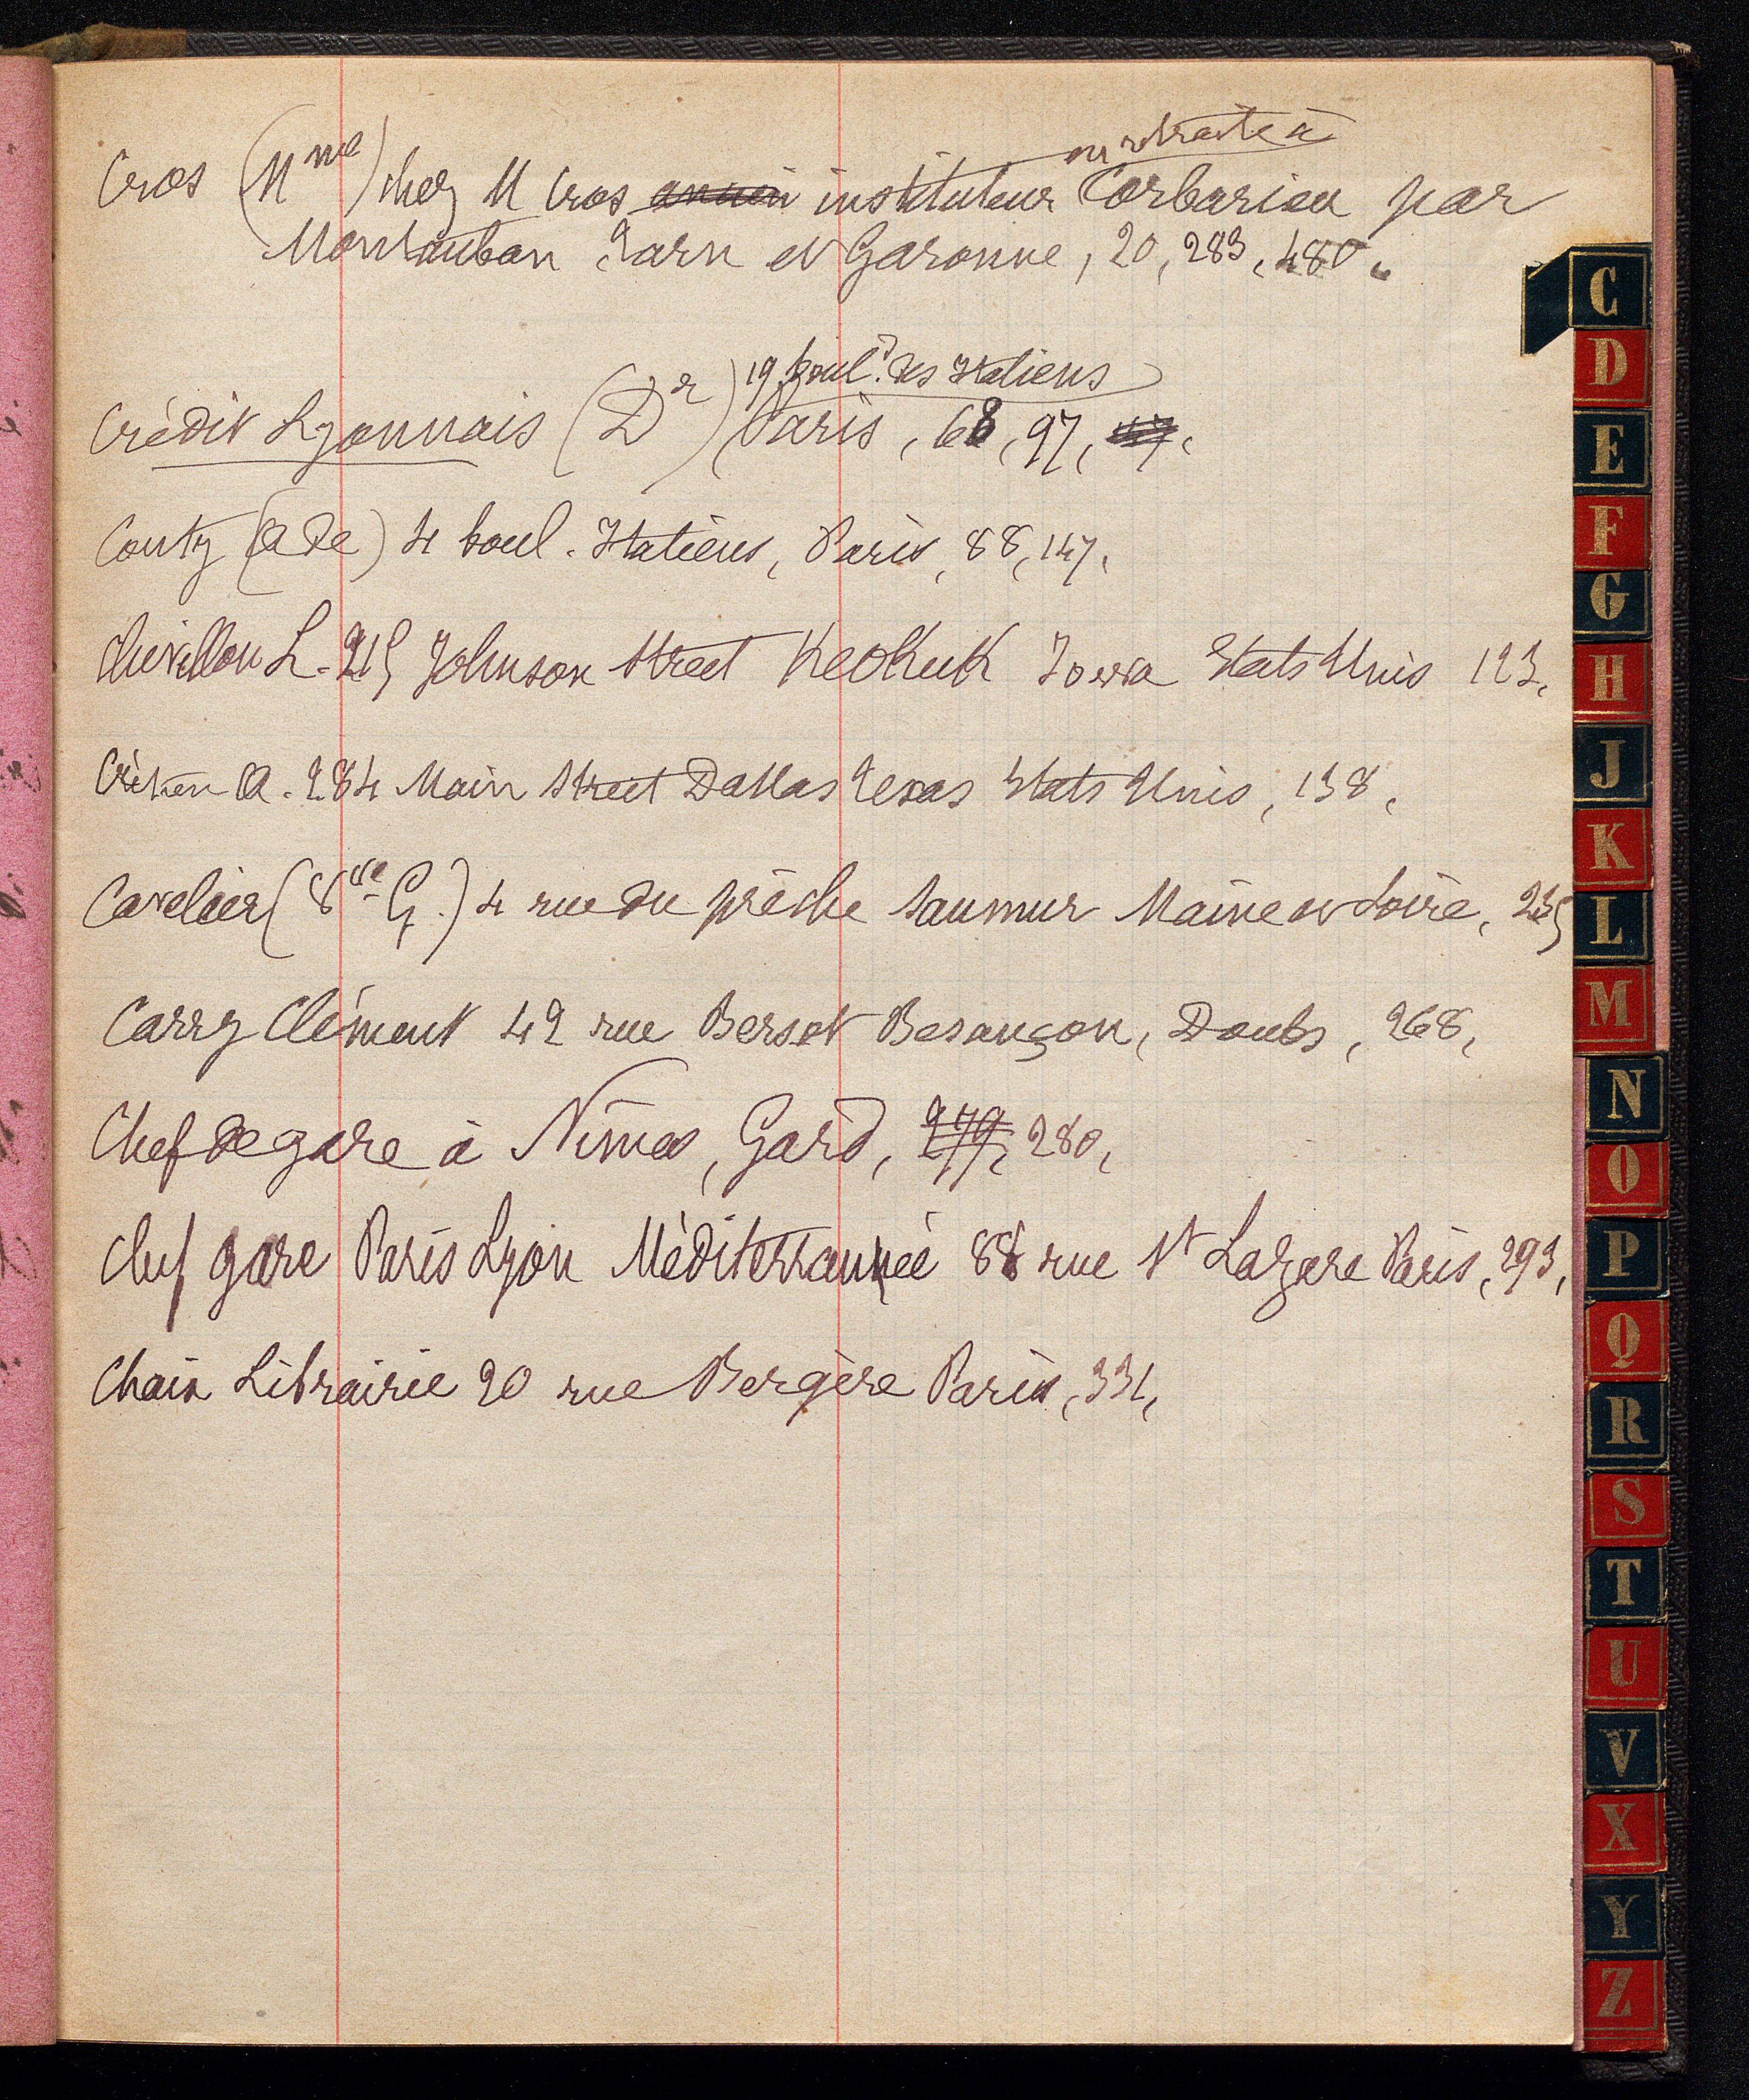 en retraite à
Cros (Mme) chez M Cros ancien instituteur Corbarieu par
Montauban Tarn et Garonne, 20, 283, 480.
19 boul.d des Italiens
Crédit Lyonnais (Dr) Paris, 68, 97,
Conty (A de) 4 boul. Italiens, Paris, 88, 147,
Chevillon L. 215 Johnson Street Keokuk Iowa Etats Unis 123,
A. 284 Main Street Dallas Texas Etats Unis, 138,
Cavelier (Vve G.) 4 rue du prêche Saumur Maine et Loire, 235
Carry Clément 42 rue Bersot Besançon, Doubs, 268,
Chef de gare à Nîmes, Gard, 279, 280,
Chef gare Paris Lyon Méditerrannée 88 rue St Lazare Paris, 293,
Chaix Librairie 20 rue Bergère Paris, 331,
C
D
E
F
G
H
J
K
L
M
N
O
P
Q
R
S
T
U
V
X
Y
Z